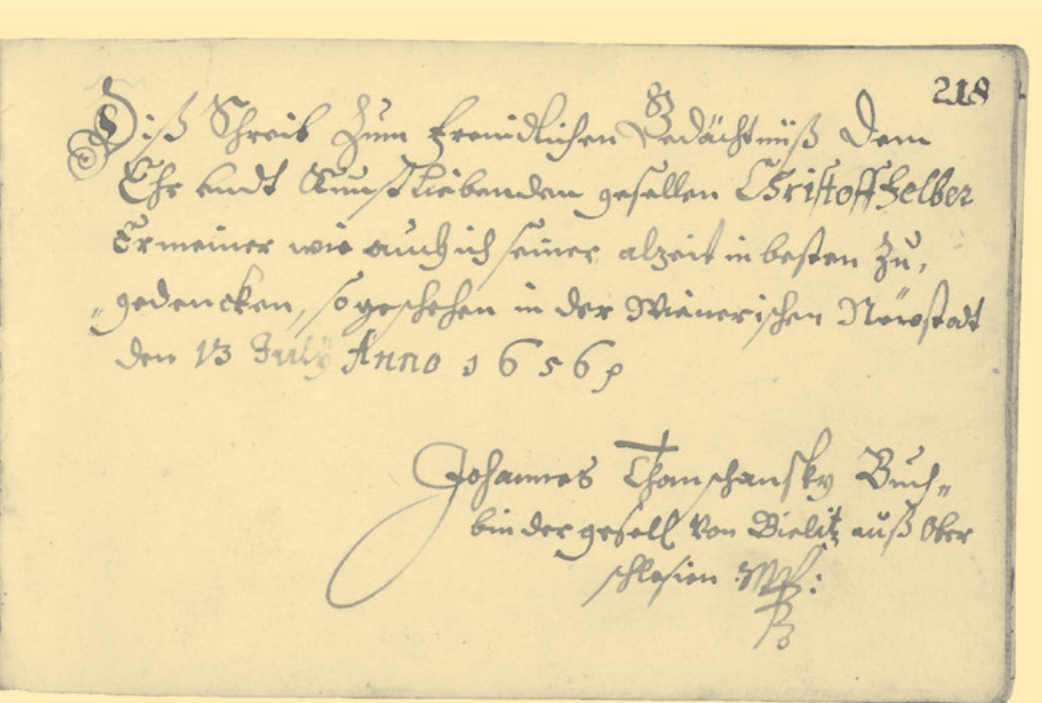 218
Diß Schreib Zum freindlichen Gedächtnüß Dem
Ehr undt Kunstliebenden gesellen Christoff Helber
Er meiner wie auch ich seiner alzeit in besten Zu,
"gedencken, so geschehen in der Wienerischen Newstadt
den 13 July Anno 1656
Johannes Buch"
binder gesell Von Bielitz auß Ober
schlesien